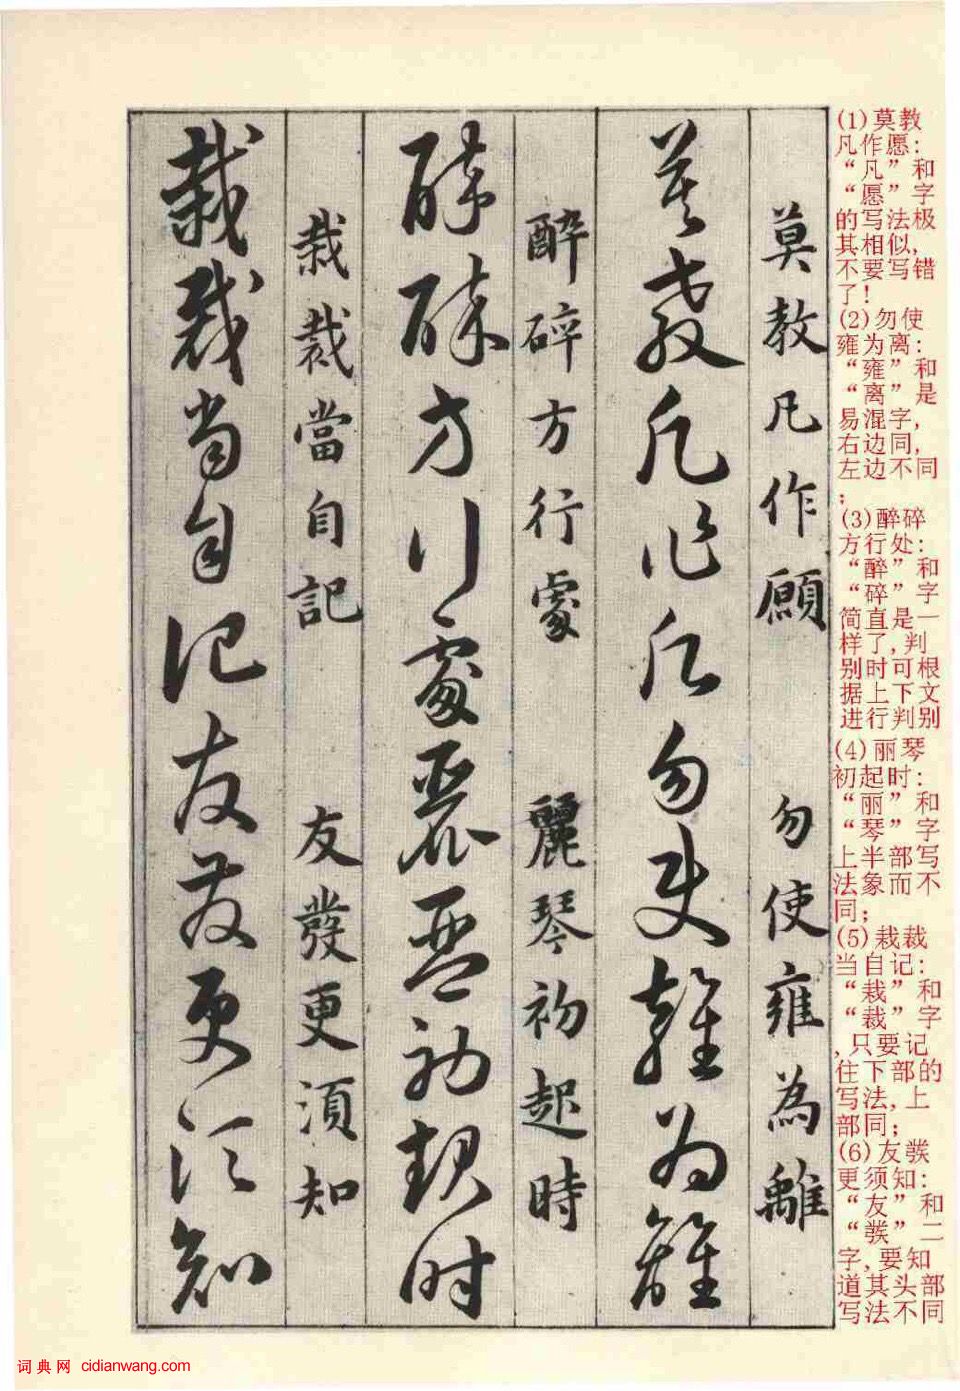 (1)莫教
凡作愿：
“凡”和
“愿”字
的写法极
其相似，
不要写错
了！
(2)勿使
雍为离：
“雍”和
“离”是
易混字，
右边同，
左边不同
；
(3)醉碎
方行处：
“醉”和
“碎”字
简直是一
样了，判
别时可根
据上下文
进行判别
(4)丽琴
初起时：
“丽”和
“琴”字
上半部写
法象而不
同；
(5)栽裁
当自记：
“栽”和
“裁”字
，只要记
住下部的
写法，上
部同；
(6)友发
更须知：
“友”和
“发”二
字，要知
道其头部
写法不同
莫教凡作願 勿使雍為離
莫教凡作愿勿使雍为離
醉碎方行處 麗琴初起時
醉碎方行處麗琴初起时
栽裁當自記 友發更須知
栽裁当自记友发更须知
词典网 cidianwang.com